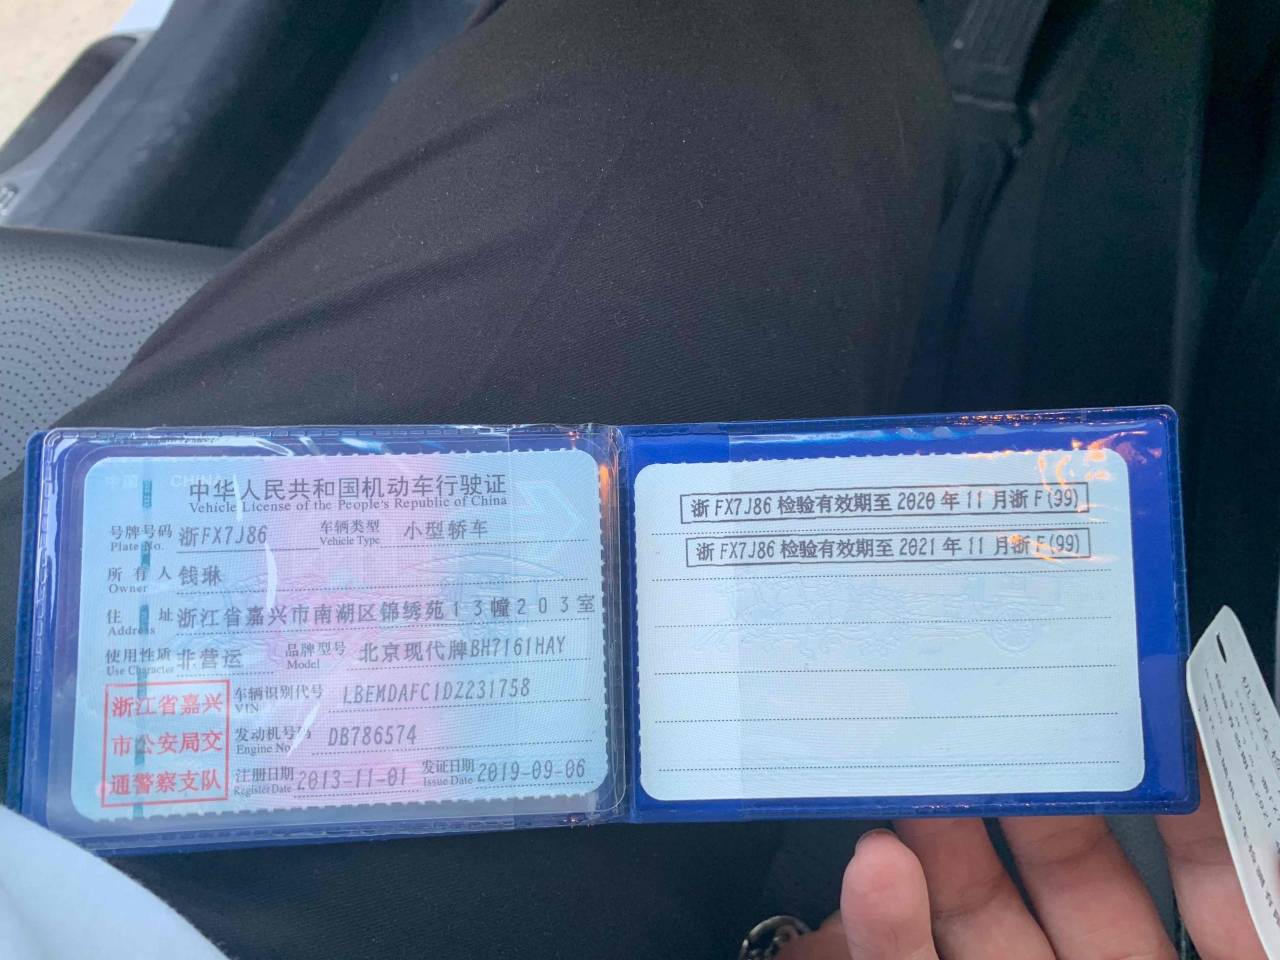 中国 CHINA
中华人民共和国机动车行驶证
Vehicle License of the People's Republic of China
号牌号码 浙FX7J86 车辆类型 小型轿车
Plate No. Vehicle Type
所有人 钱琳
Owner
住址 浙江省嘉兴市南湖区锦绣苑13幢203室
Address
使用性质 非营运 品牌型号 北京现代牌BH7161HAY
Use Character Model
浙江省嘉兴
市公安局交
通警察支队
车辆识别代号 LBEMDAFC1DZ231758
VIN
发动机号码 DB786574
Engine No.
注册日期 2013-11-01 发证日期 2019-09-06
Register Date Issue Date
浙FX7J86检验有效期至2020年11月浙F(99)
浙FX7J86检验有效期至2021年11月浙F(99)